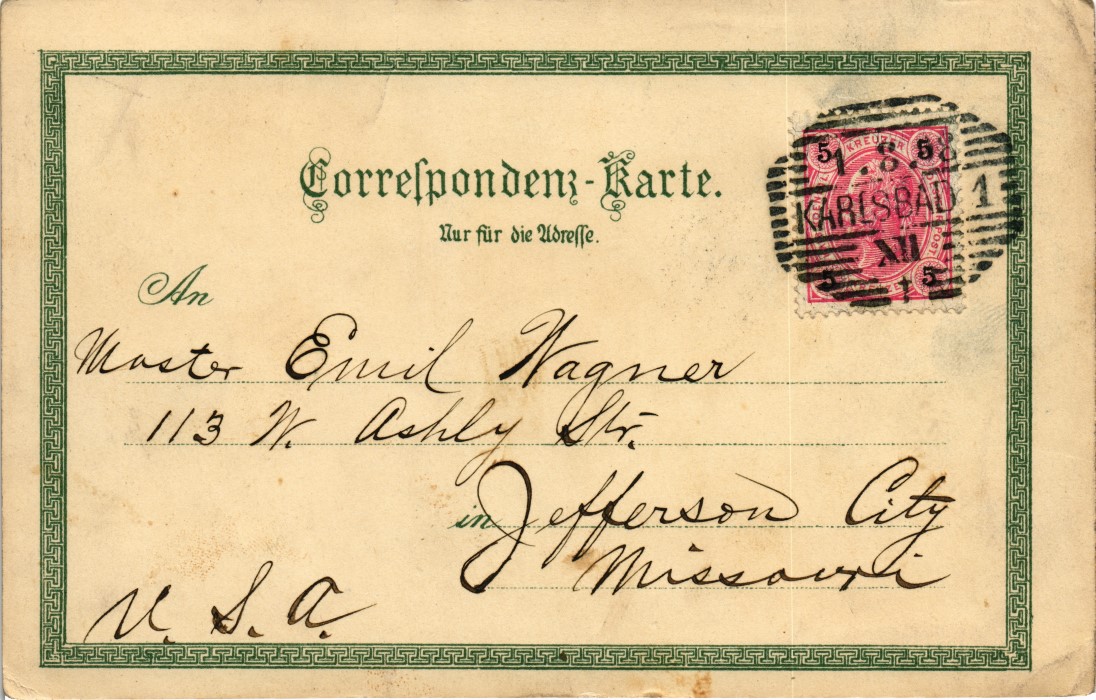 Correspondenz-Karte.
Nur für die Adresse.
5 KREUZER 5
1.8.98
KARLSBAD 1
XII
5 5
An
Master Emil Wagner
113 W. Ashly Str.
in Jefferson City
Missouri
U. S. A.